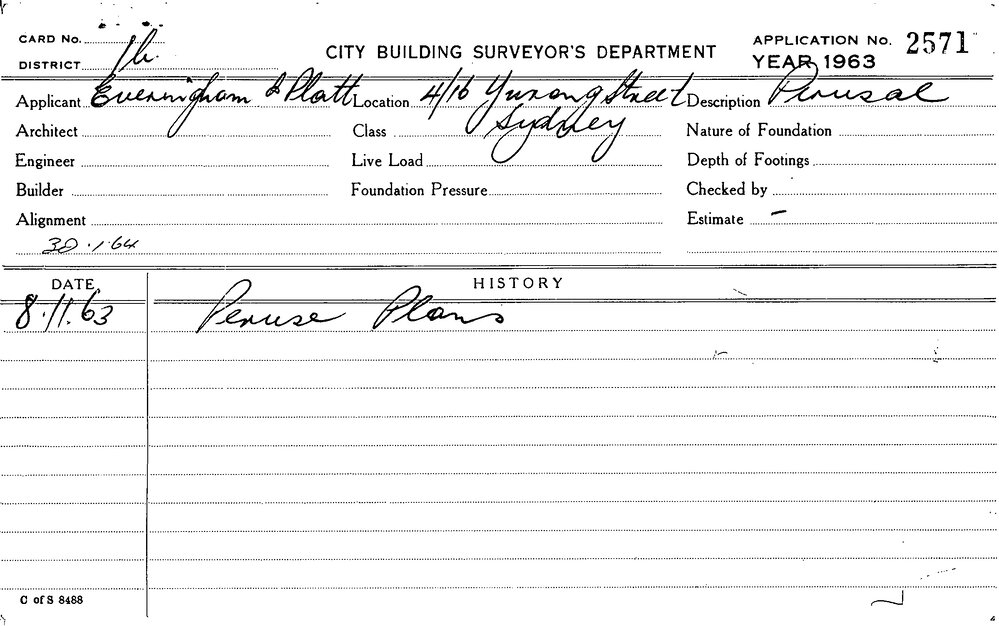 CARD No.
DISTRICT 1b.
CITY BUILDING SURVEYOR'S DEPARTMENT
APPLICATION No. 2571
YEAR 1963
Applicant Everingham & Platt Location 4/16 Yurong Street Description Perusal
Sydney
Architect Class Nature of Foundation
Engineer Live Load Depth of Footings
Builder Foundation Pressure Checked by
Alignment Estimate –
30.1.64
DATE HISTORY
8.11.63 Peruse Plans
C of S 8488